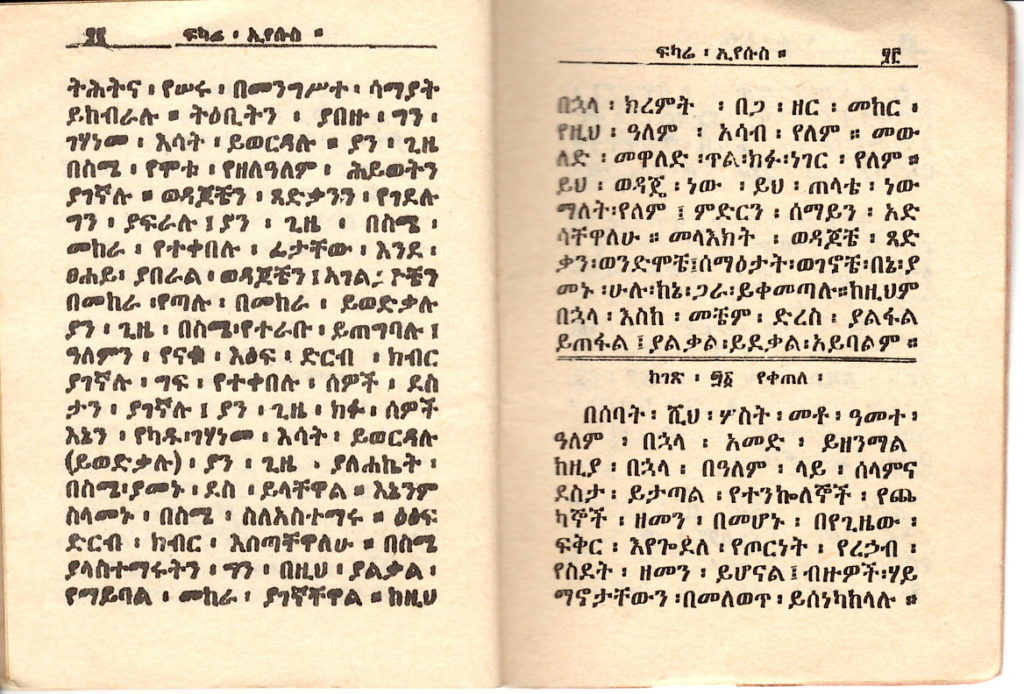 ፶፪ ፍካሬ ፡ ኢየሱስ ።
ትሕትና ፡ የሠሩ ፡ በመንግሥተ ፡ ሳማያት
ይከብራሉ ። ትዕቢትን ፡ ያበዙ ፡ ግን ፡
ገሃነመ ፡ እሳት ፡ ይወርዳሉ ። ያን ፡ ጊዜ
በስሜ ፡ የሞቱ ፡ የዘለዓለም ፡ ሕይወትን
ያገኛሉ ። ወዳጆቼን ፡ ጻድቃንን ፡ የገደሉ
ግን ፡ ያፍራሉ ፤ ያን ፡ ጊዜ ፡ በስሜ ፡
መከራ ፡ የተቀበሉ ፡ ፊታቸው ፡ እንደ ፡
ፀሐይ ፡ ያበራል ፡ ወዳጆቼን ፤ አገልጋዮቼን
በመከራ ፡ የጣሉ ፡ በመከራ ፡ ይወድቃሉ
ያን ፡ ጊዜ ፡ በስሜ ፡ የተራቡ ፡ ይጠግባሉ ፤
ዓለምን ፡ የናቁ ፡ እፅፍ ፡ ድርብ ፡ ክብር
ያገኛሉ ፡ ግፍ ፡ የተቀበሉ ፡ ሰዎች ፡ ደስ
ታን ፡ ያገኛሉ ፤ ያን ፡ ጊዜ ፡ ክፉ ፡ ሰዎች
እኔን ፡ የካዱ ፡ ገሃነመ ፡ እሳት ፡ ይወርዳሉ
(ይወድቃሉ) ፡ ያን ፡ ጊዜ ፡ ያለሐኬት ፡
በስሜ ፡ ያመኑ ፡ ደስ ፡ ይላቸዋል ። እኔንም
ስላመኑ ፡ በስሜ ፡ ስለአስተማሩ ። ዕፅፍ
ድርብ ፡ ክብር ፡ እሰጣቸዋለሁ ። በስሜ
ያላስተማሩትን ፡ ግን ፡ በዚህ ፡ ያልቃል ፡
የማይባል ፡ መከራ ፡ ያገኛቸዋል ። ከዚህ
ፍካሬ ፡ ኢየሱስ ። ፶፫
በኋላ ፡ ክረምት ፡ በጋ ፡ ዘር ፡ መከር ፡
የዚህ ፡ ዓለም ፡ አሳብ ፡ የለም ። መው
ለድ ፡ መዋለድ ፡ ጥል ፡ ክፉ ፡ ነገር ፡ የለም ።
ይህ ፡ ወዳጄ ፡ ነው ፡ ይህ ፡ ጠላቴ ፡ ነው
ማለት ፡ የለም ፤ ምድርን ፡ ሰማይን ፡ አድ
ሳቸዋለሁ ። መላእክት ፡ ወዳጆቼ ፡ ጻድ
ቃን ፡ ወንድሞቼ ፤ ሰማዕታት ፡ ወገኖቼ ፡ በኔ ፡ ያ
መኑ ፡ ሁሉ ፡ ከኔ ፡ ጋራ ፡ ይቀመጣሉ ። ከዚህም
በኋላ ፡ እስከ ፡ መቼም ፡ ድረስ ፡ ያልፋል
ይጠፋል ፤ ያልቃል ፡ ይደቃል ፡ አይባልም ።
ከገጽ ፡ ፵፩ የቀጠለ ፡
በሰባት ፡ ሺህ ፡ ሦስት ፡ መቶ ፡ ዓመተ ፡
ዓለም ፡ በኋላ ፡ አመድ ፡ ይዘንማል
ከዚያ ፡ በኋላ ፡ በዓለም ፡ ላይ ፡ ሰላምና
ደስታ ፡ ይታጣል ፡ የተንኰለኞች ፡ የጨ
ካኞች ፡ ዘመን ፡ በመሆኑ ፡ በየጊዜው ፡
ፍቅር ፡ እየጐደለ ፡ የጦርነት ፡ የረኃብ ፡
የስደት ፡ ዘመን ፡ ይሆናል ፤ ብዙዎች ፡ ሃይ
ማኖታቸውን ፡ በመለወጥ ፡ ይሰነካከላሉ ።